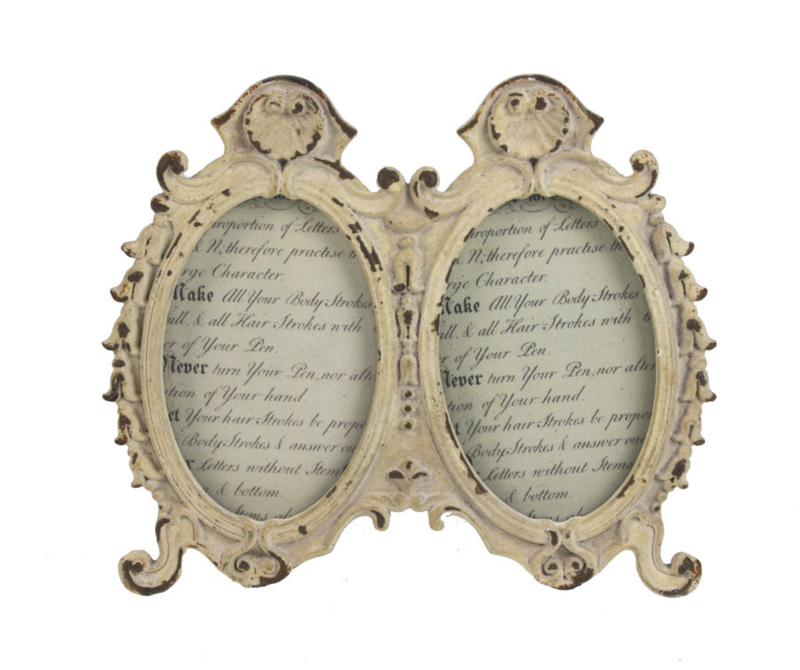 Proportion of Letters
& N, therefore practise
Character.
Make All Your Body Strokes
& all Hair Strokes with
of Your Pen.
Never turn Your Pen, nor
of Your hand.
Your hair Strokes be
Body Strokes & answer
Letters without Stems
& bottom.
Proportion of Letters
N, therefore practise
Character.
Make All Your Body Strokes
& all Hair Strokes with
of Your Pen.
Never turn Your Pen, nor
of Your hand.
Your hair Strokes be
Body Strokes & answer
Letters without Stems
& bottom.